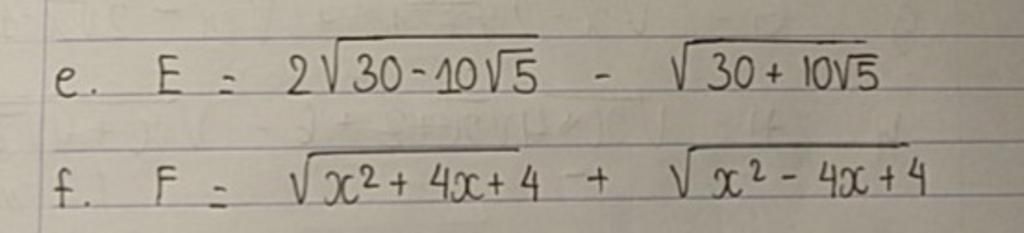 e. E = 2√30 - 10√5 - √30 + 10√5
f. F = √x² + 4x + 4 + √x² - 4x + 4